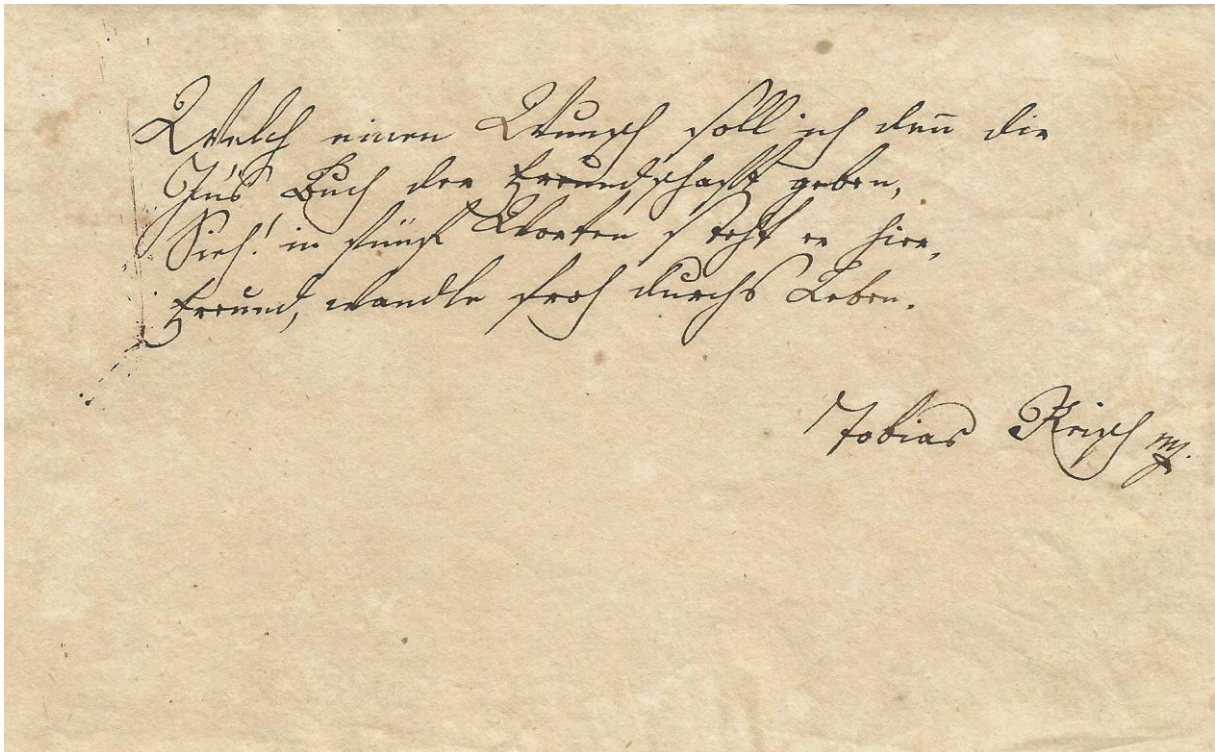 Welch einen Wunsch soll ich denn dir
In's Buch der Freundschaft geben,
Sieh! in fünf Worten steht er hier,
Freund, wandle froh durchs Leben.
Tobias